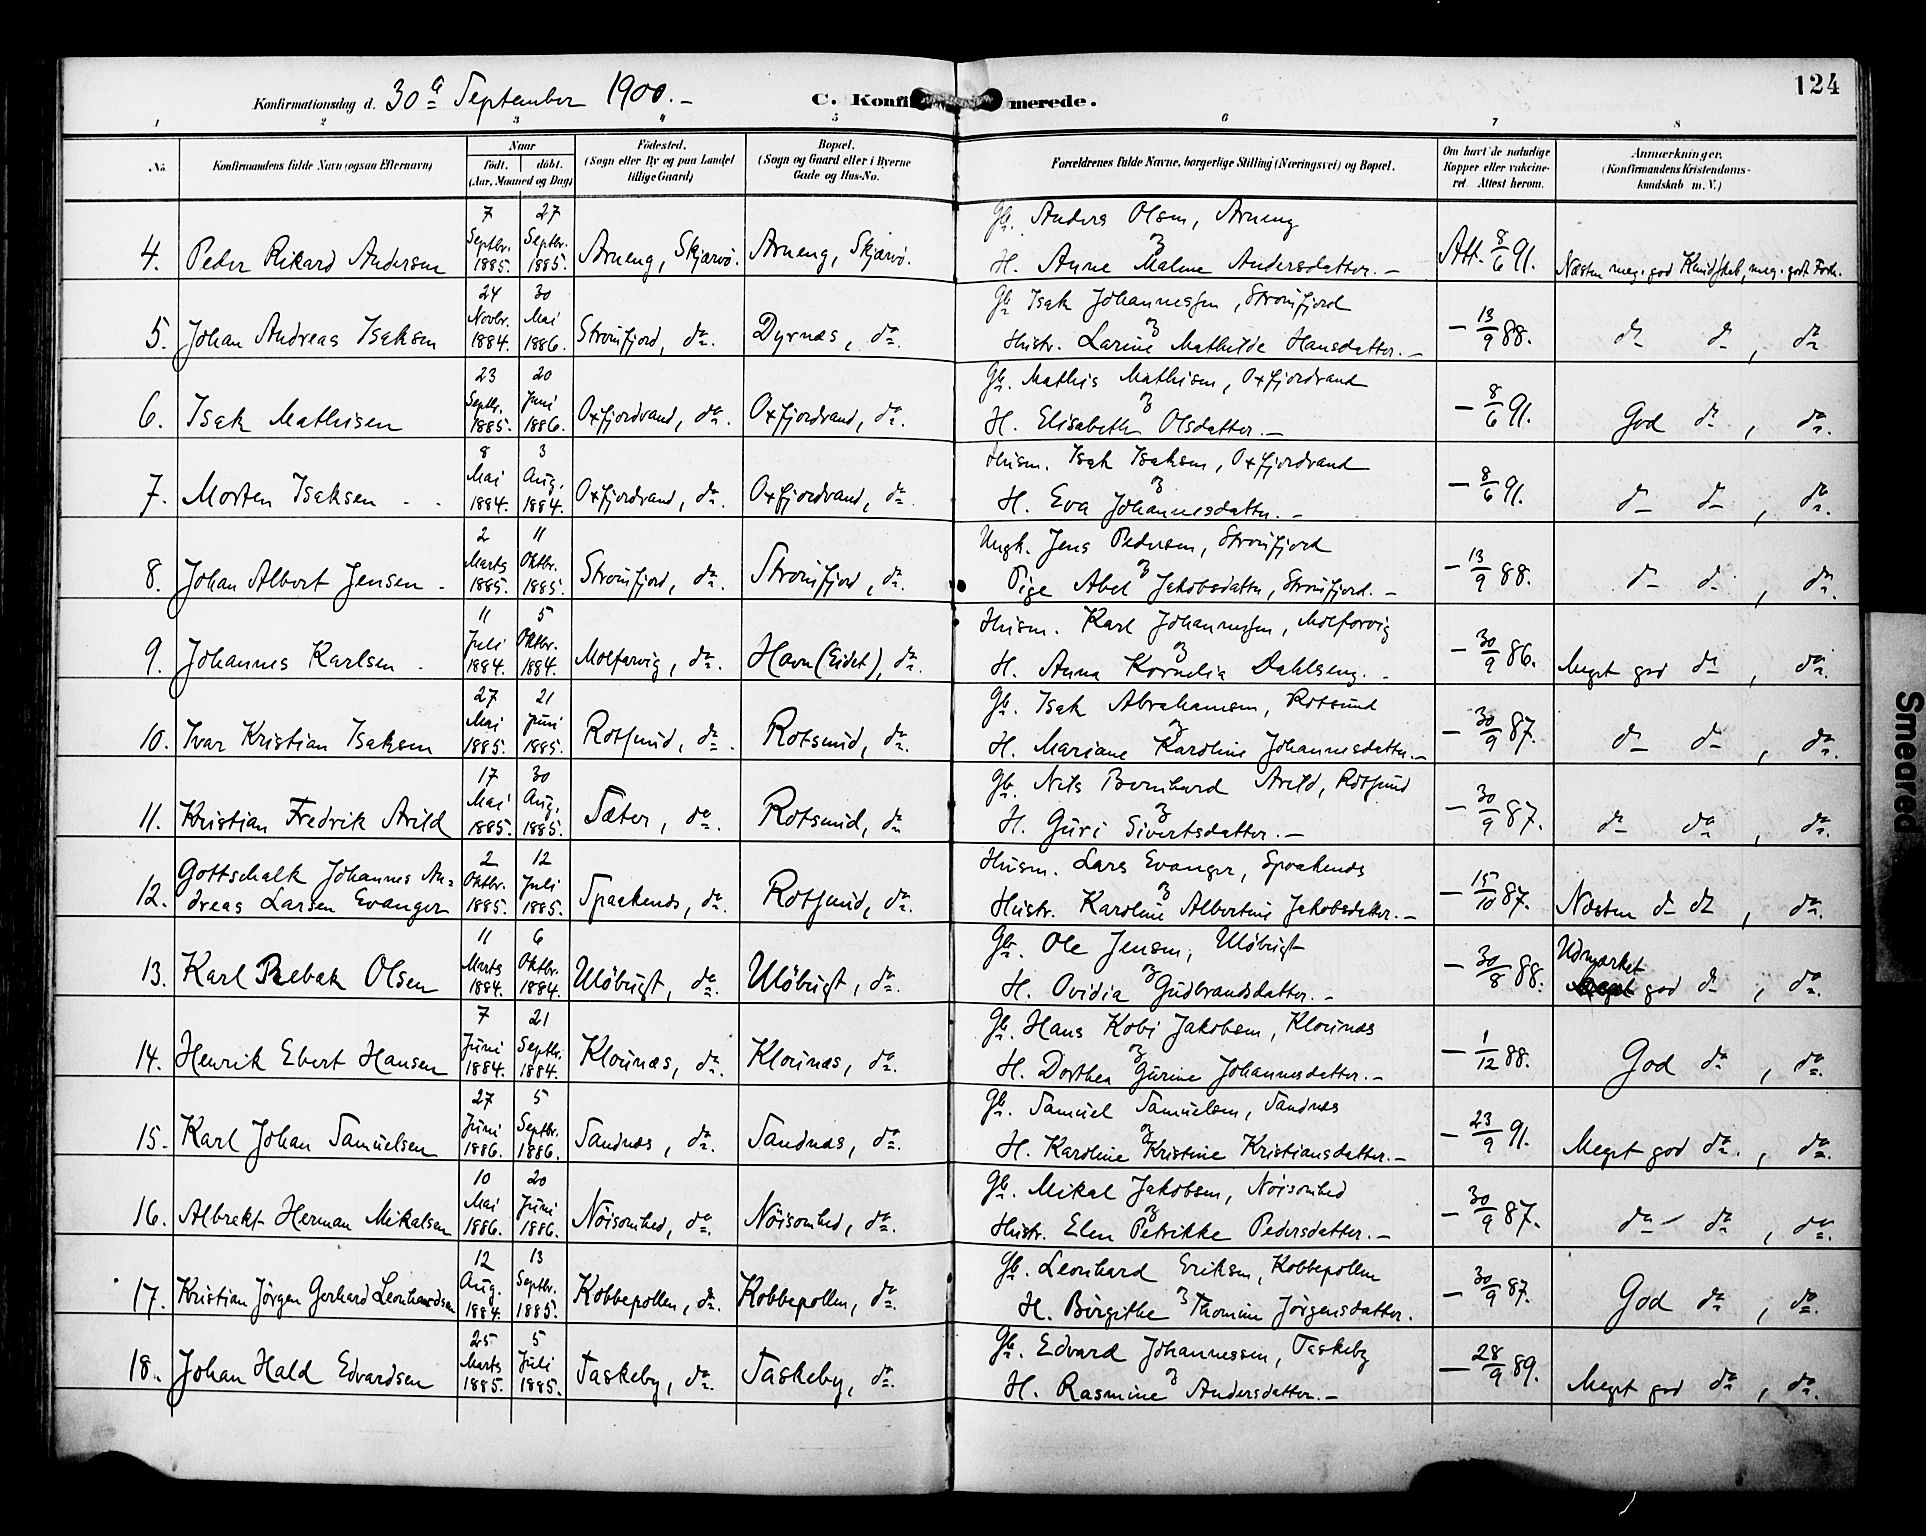 124
Konfirmationsdag d. 30te September 1900. C. Konfirmerede.
1 2 3 4 5 6 7 8
No. Konfirmandens fulde Navn (ogsaa Efternavn) Naar født. døbt. (Aar, Maaned og Dag) Fødested. (Sogn eller By og paa Landet tillige Gaard) Bopæl. (Sogn og Gaard eller i Byerne Gade og Hus-No. Forældrenes fulde Navne, borgerlige Stilling (Næringsvei) og Bopæl. Om havt de naturlige Kopper eller vakcineret. Attest herom. Anmærkninger. (Konfirmandens Kristendomskundskab m. V.)
4. Peder Rikard Andersen 7 Septbr. 1885. 27 Septbr. 1885. Arneng, Skjærvö. Arneng, Skjærvö. Gb. Anders Olsen, Arneng
H. Anne Malene Andersdatter. Att. 8/6 91. Næsten meg. god Kundskab, meg. godt Forh.
5. Johan Andreas Isaksen 24 Novbr. 1884. 30 Mai 1886. Strømfjord, do. Dyrnæs, do. Gb. Isak Johannessen, Strømfjord
Hustr. Larine Mathilde Hansdatter. – 13/9 88. do do, do
6. Isak Mathisen 23 Septbr. 1885. 20 Juni 1886. Oxfjordvand, do. Oxfjordvand, do. Gb. Mathis Mathisen, Oxfjordvand
H. Elisabeth Olsdatter. – 8/6 91. God do, do.
7. Morten Isaksen 8 Mai 1884. 3 Aug. 1884. Oxfjordvand, do. Oxfjordvand, do. Husm. Isak Isaksen, Oxfjordvand
H. Eva Johannesdatter. – 8/6 91. do do, do.
8. Johan Albert Jensen 2 Marts 1885. 11 Oktbr. 1885. Strømfjord, do. Strømfjord, do. Ungk. Jens Pedersen, Strømfjord
Pige Abel Jakobsdatter, Strømfjord. – 13/9 88. do do, do.
9. Johannes Karlsen 11 Juli 1884. 5 Oktbr. 1884. Molforvig, do. Havn (Eidet), do. Husm. Karl Johannessen, Molforvig
H. Anna Kornelia Dahlseng. – 30/9 86. Meget god do, do.
10. Ivar Kristian Isaksen 27 Mai 1885. 21 Juni 1885. Rotsund, do. Rotsund, do. Gb. Isak Abrahamsen, Rotsund
H. Mariane Karoline Johannesdatter. – 30/9 87. do do, do.
11. Kristian Fredrik Arild 17 Mai 1885. 30 Aug. 1885. Sæter, do. Rotsund, do Gb. Nils Bernhard Arild, Rotsund
H. Guri Sivertsdatter. – 30/9 87. do do, do.
12. Gottschalk Johannes Andreas Larsen Evanger 2 Oktbr. 1885. 12 Juli 1885. Spaakends, do. Rotsund, do. Husm. Lars Evanger, Spaakends
Hustr. Karoline Albertine Jakobsdatter. – 15/10 87. Næsten do do, do.
13. Karl Rebak Olsen 11 Marts 1884. 6 Oktbr. 1884. Ulöbugt, do. Ulöbugt, do. Gb. Ole Jensen, Ulöbugt
H. Ovidia Gudbrandsdatter. – 30/8 88. Udmærket god do, do.
14. Henrik Ebert Hansen 7 Juni 1884. 21 Septbr. 1884. Klounæs, do. Klounæs, do. Gb. Hans Kobi Jakobsen, Klounæs
H. Dorthea Gurine Johannesdatter. – 1/12 88. God do, do.
15. Karl Johan Samuelsen 27 Juni 1886. 5 Septbr. 1886. Sandnæs, do. Sandnæs, do. Gb. Samuel Samuelsen, Sandnæs
H. Karoline Kristine Kristiansdatter. – 23/9 91. Meget god do, do.
16. Albrekt Herman Mikalsen 10 Mai 1886. 20 Juni 1886. Nöisomhed, do. Nöisomhed, do. Gb. Mikal Jakobsen, Nöisomhed
Hustr. Elen Petrikke Pedersdatter. – 30/9 87. do do, do.
17. Kristian Jörgen Gerhard Leonhardsen 12 Aug. 1884. 13 Septbr. 1885. Kobbepollen, do. Kobbepollen, do. Gb. Leonhard Eriksen, Kobbepollen
H. Birgithe Thomine Jörgensdatter. – 30/9 87. God do, do.
18. Johan Hald Edvardsen 25 Marts 1885. 5 Juli 1885. Taskeby, do. Taskeby, do. Gb. Edvard Johannessen, Taskeby
H. Rasmine Andersdatter. – 28/9 89. Meget god do, do.
Smeared